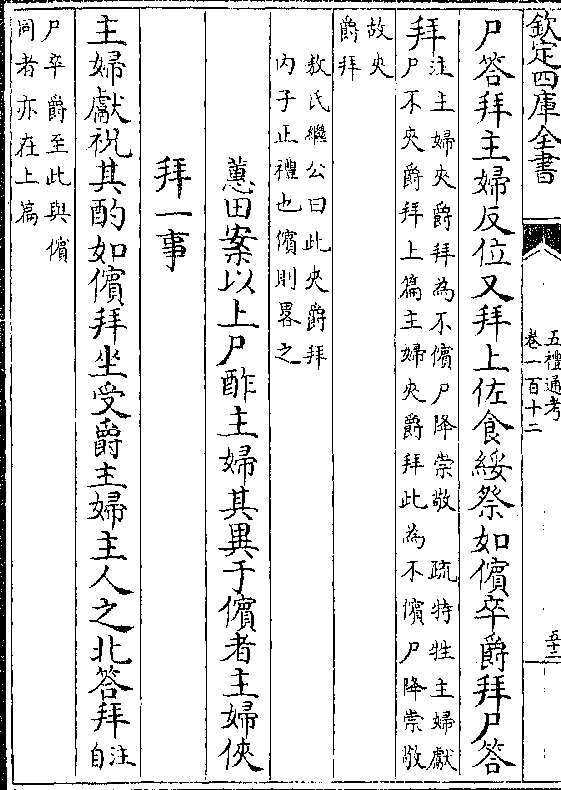 欽定四庫全書
五禮通考
卷一百十二
五十二
尸答拜主婦反位又拜上佐食綏祭如儐卒爵拜尸答
拜
注主婦夾爵拜為不儐尸降崇敬　疏特牲主婦獻
尸不夾爵拜上篇主婦夾爵拜此為不儐尸降崇敬
故夾
爵拜
敖氏繼公曰此夾爵拜
内子正禮也儐則畧之
蕙田案以上尸酢主婦其異于儐者主婦俠
拜一事
主婦獻祝其酌如儐拜坐受爵主婦主人之北答拜
注
自
尸卒爵至此與儐
同者亦在上篇